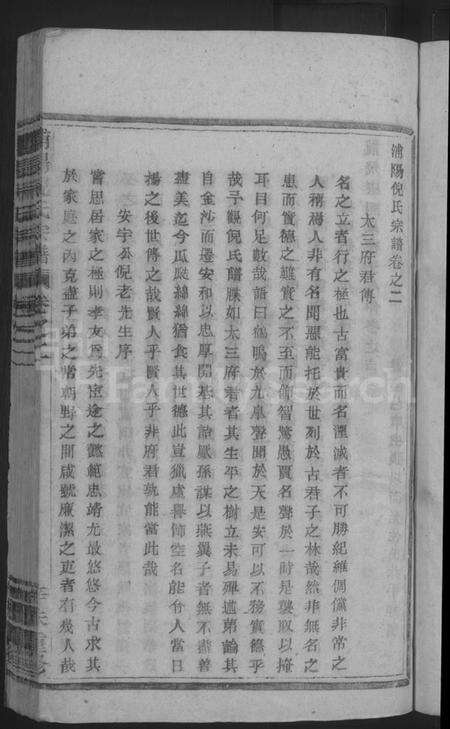 浦陽倪氏宗譜卷之二
太三府君傳
名之立者行之極也古富貴而名湮滅者不可勝紀維倜儻非常之
人稱焉人非有名聞爲能托於世列於古君子之林哉然非無名之
患而實德之難實之不至而飾智驚愚買名聲於一時是襲取以掩
耳目何足數哉語曰鶴鳴於九皐聲聞於天是安可以不務實德乎
哉予觀倪氏譜牒如太三府君者其生平之樹立未易殫述第論其
自金沙而遷安和以忠厚開基其詒厥孫謀以燕翼子者無不盡善
盡美迄今瓜瓞綿綿猶食其世德此豈獵虛譽飾空名能令人當日
揚之後世傳之哉賢人乎賢人乎非府君孰能當此哉
安宇公倪老先生序
嘗思居家之極則孝友爲先宦途之懿範忠靖尤最悠悠今古求其
於家庭之內克盡子弟之常朝野之間咸號廉潔之吏者有幾人哉
FamilySearch